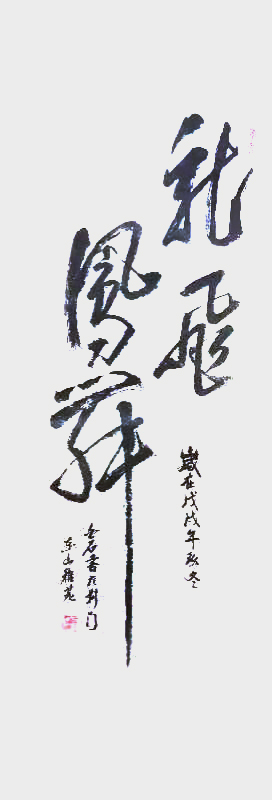 龍飛
鳳舞
歲在戊戌年秋冬
金石書於
東山雅苑